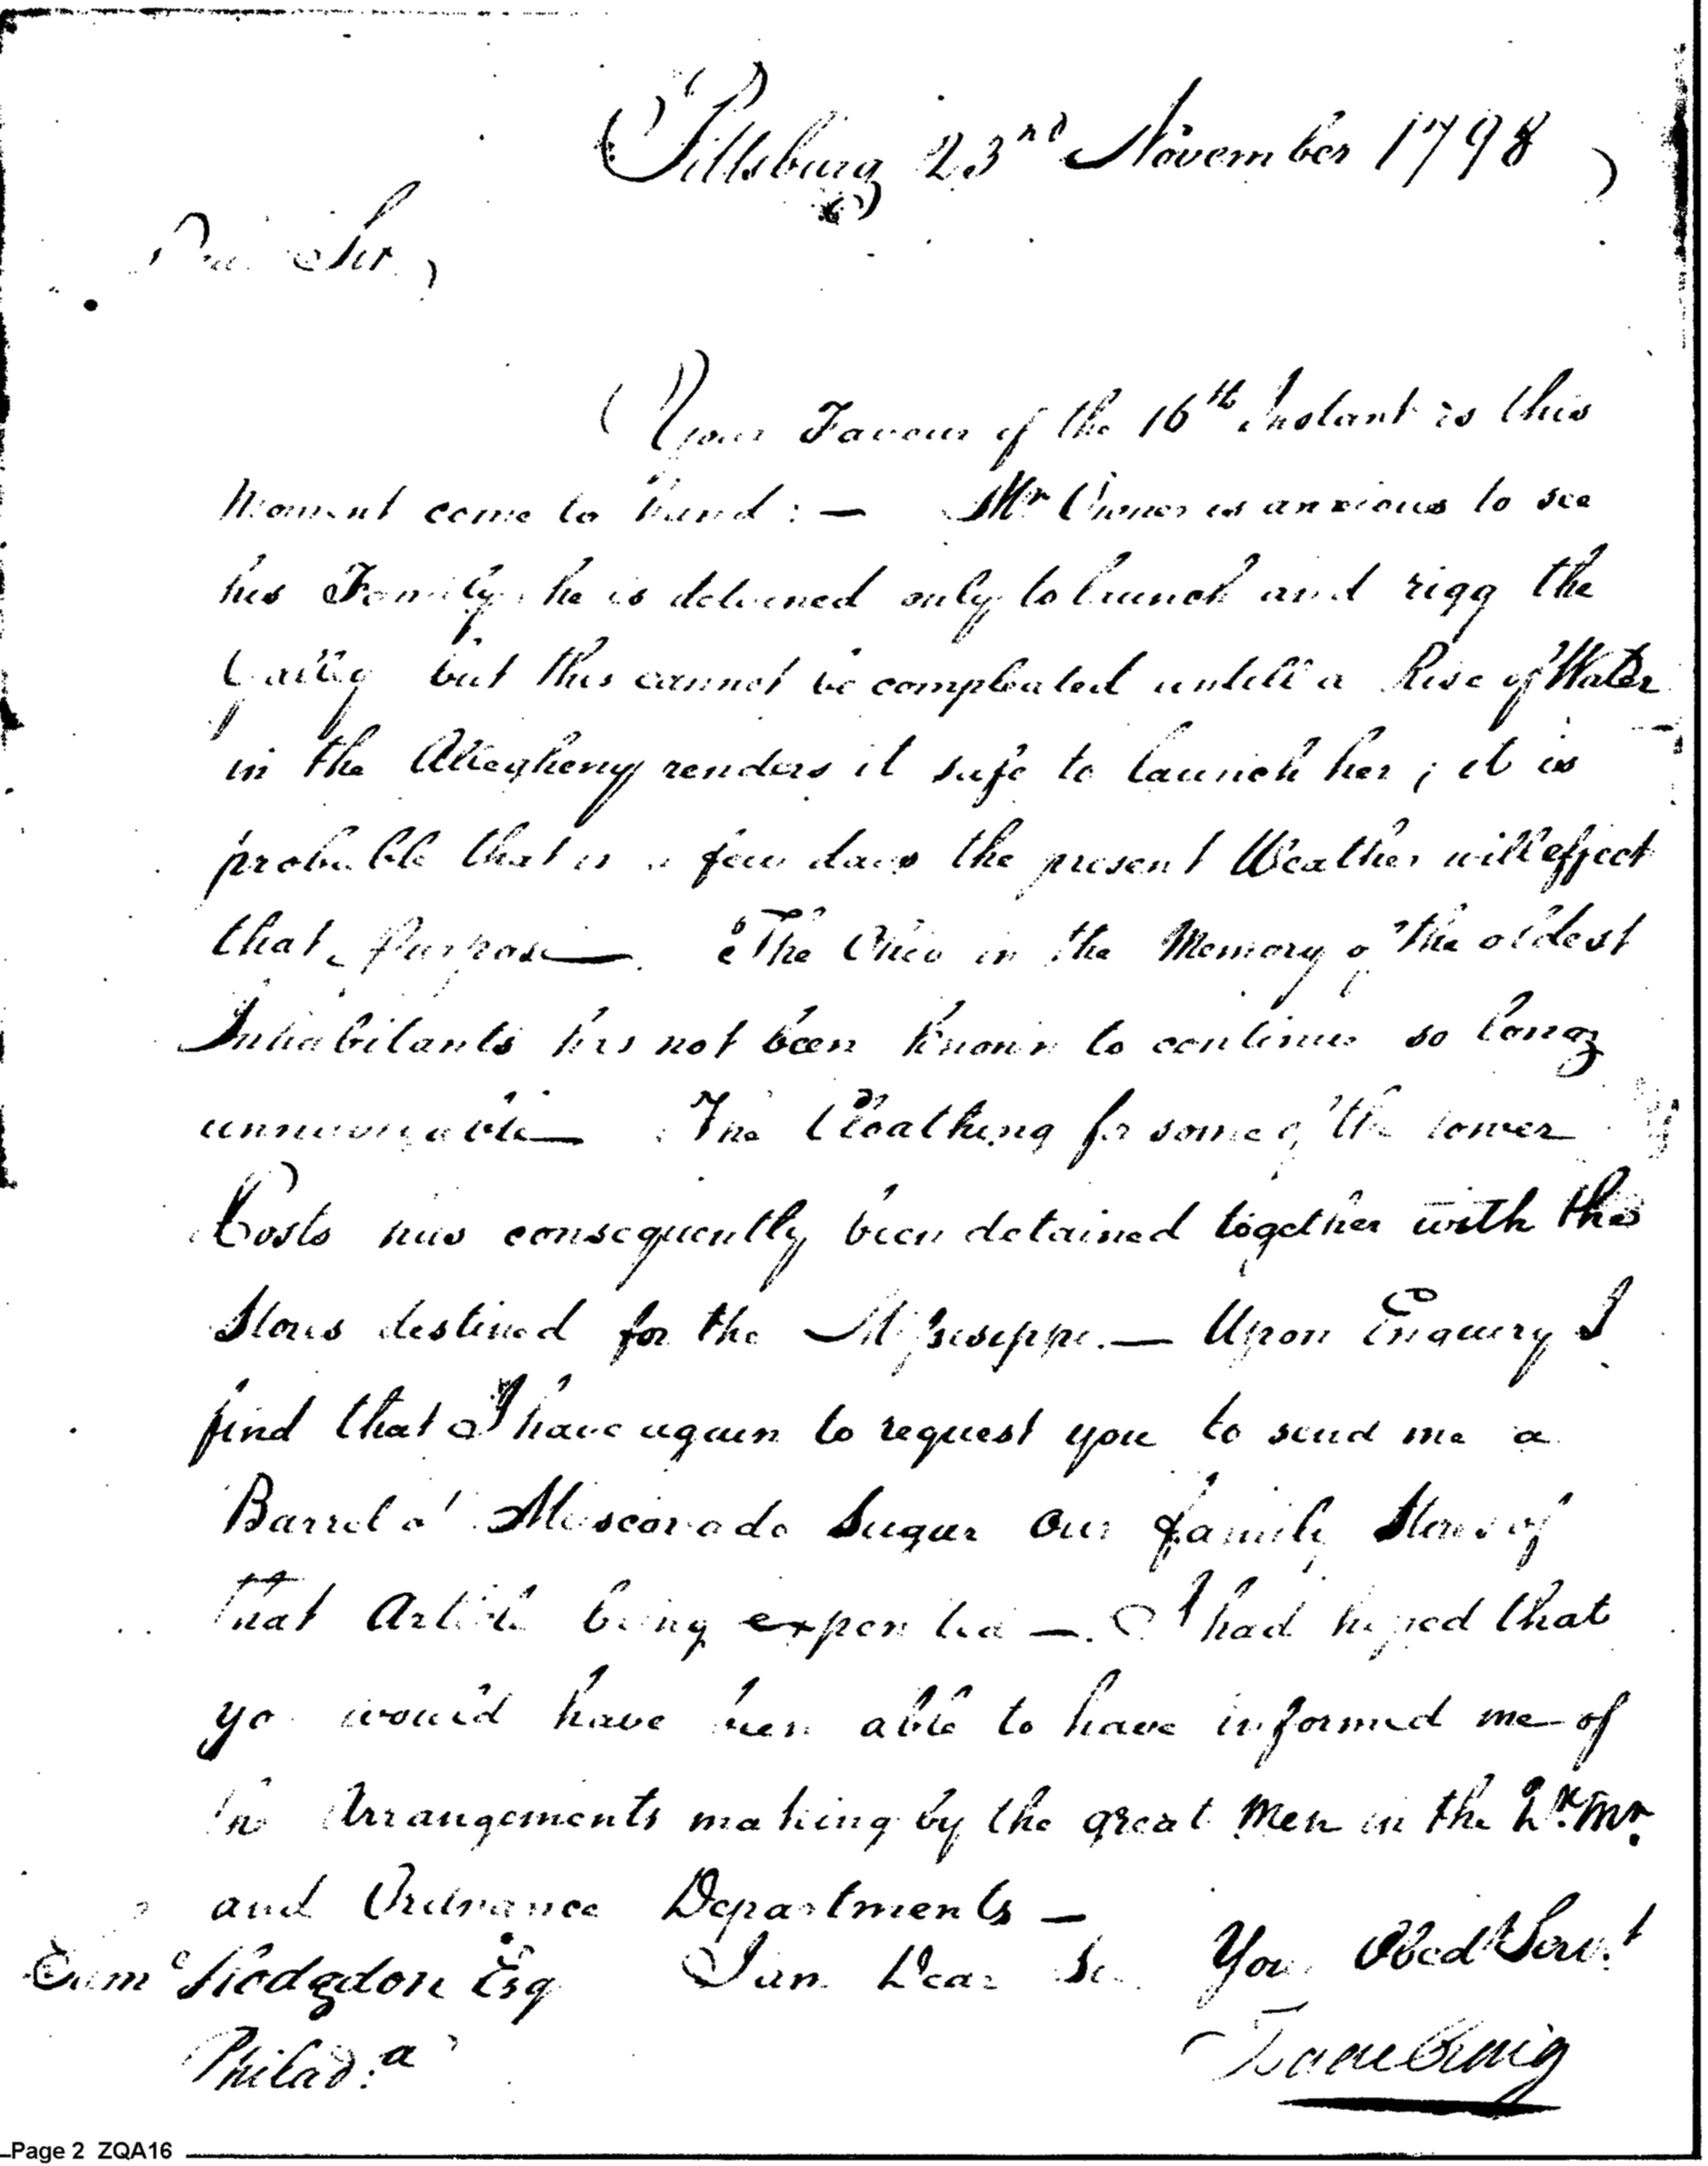 Pittsburg 23rd November 1798
Dear Sir,
Your Favour of the 16th Instant is this
Moment come to hand : — Mr is anxious to see
his Family, he is detained only to launch and rigg the
Galley but this cannot be compleated untill a Rise of Water
in the Allegheny renders it safe to launch her ; it is
probable that in a few days the present Weather will effect
that Purpose —. The Ohio in the Memory of the oldest
Inhabitants has not been known to continue so long
unnavigable — The Cloathing for some of the lower
Posts has consequently been detained together with the
Stores destined for the Missisippi. — Upon Enquiry I
find that I have again to request you to send me a
Barrel of Muscovado Sugar our family Stores of
that Article being expended —. I had hoped that
you would have been able to have informed me of
the Arrangements making by the great Men in the Qr. Mr.
and Ordnance Departments —
I am Dear Sir Your Obedt Servt
Saml Hodgdon Esq
Philada
Isaac Craig
Page 2 ZQA16